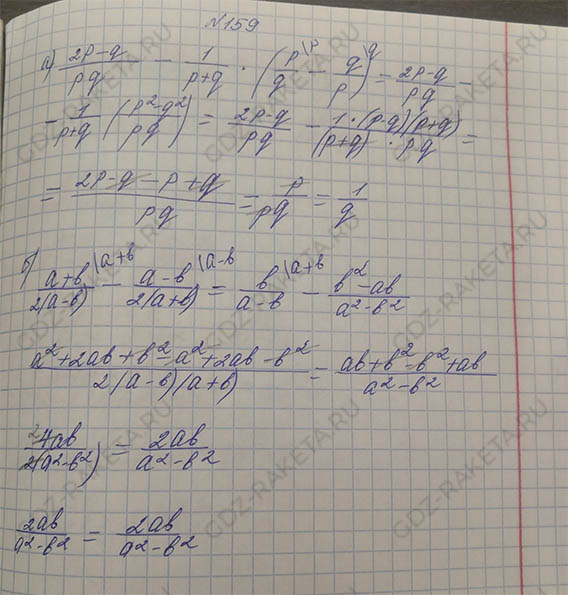 №159
а) (2p-q)/(pq) - 1/(p+q) · (p/q \p - q/p \q) = (2p-q)/(pq) -
- 1/(p+q) ((p²-q²)/(pq)) = (2p-q)/(pq) - (1·(p-q)(p+q))/((p+q)·pq) =
= (2p-q-p+q)/(pq) = p/(pq) = 1/q
б) (a+b)/(2(a-b)) \a+b - (a-b)/(2(a+b)) \a-b = b/(a-b) \a+b - (b²-ab)/(a²-b²)
(a²+2ab+b²-a²+2ab-b²)/(2(a-b)(a+b)) = (ab+b²-b²+ab)/(a²-b²)
²4ab/(2(a²-b²)) = 2ab/(a²-b²)
2ab/(a²-b²) = 2ab/(a²-b²)
GDZ-RAKETA.RU